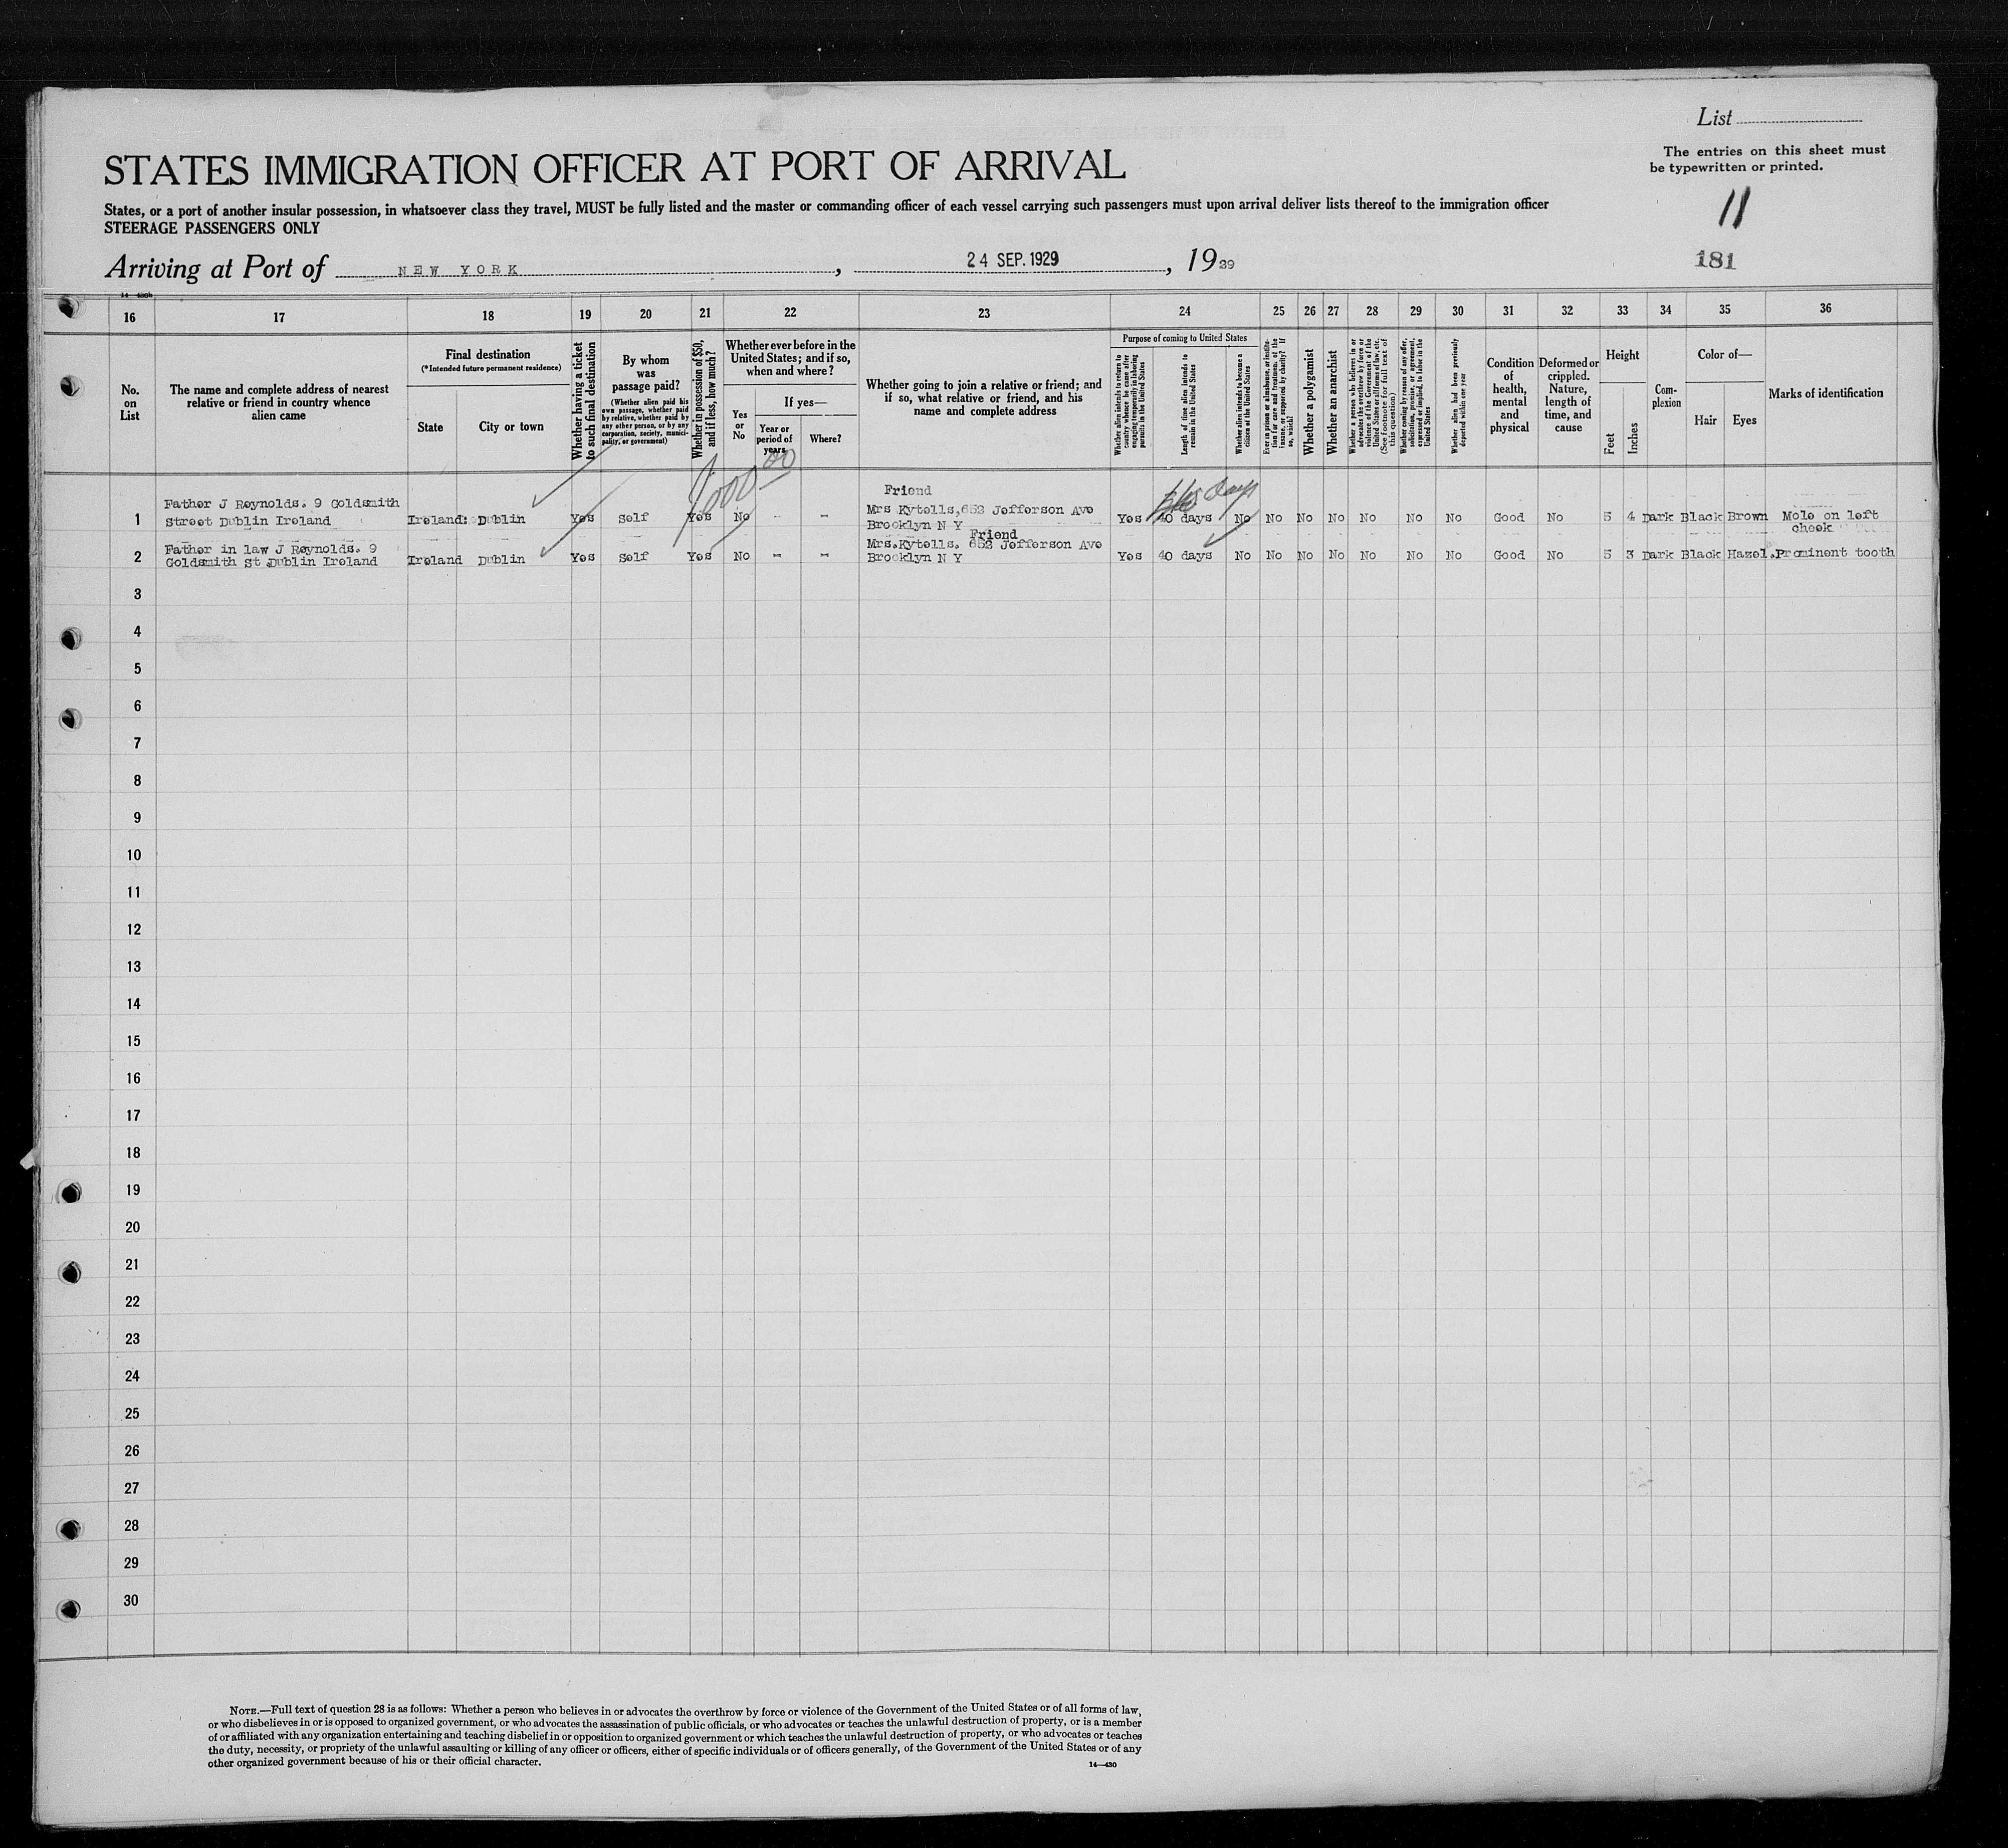 List
The entries on this sheet must
be typewritten or printed.
STATES IMMIGRATION OFFICER AT PORT OF ARRIVAL
States, or a port of another insular possession, in whatsoever class they travel, MUST be fully listed and the master or commanding officer of each vessel carrying such passengers must upon arrival deliver lists thereof to the immigration officer
STEERAGE PASSENGERS ONLY
11
181
Arriving at Port of NEW YORK, 24 SEP. 1929, 19 29
16 17 18 19 20 21 22 23 24 25 26 27 28 29 30 31 32 33 34 35 36
No.
on
List
The name and complete address of nearest
relative or friend in country whence
alien came
Final destination
(*Intended future permanent residence)
State
City or town
Whether having a ticket
to such final destination
By whom
was
passage paid?
(Whether alien paid his
own passage, whether paid
by relative, whether paid by
any other person, or by any
corporation, society, munici-
pality, or government)
Whether in possession of $50,
and if less, how much?
Whether ever before in the
United States; and if so,
when and where?
Yes
or
No
If yes—
Year or
period of
years
Where?
Whether going to join a relative or friend; and
if so, what relative or friend, and his
name and complete address
Purpose of coming to United States
Whether alien intends to return to
country whence he came after
engaging temporarily in laboring
pursuits in the United States
Length of time alien intends to
remain in the United States
Whether alien intends to become a
citizen of the United States
Ever in prison or almshouse, or institu-
tion for care and treatment of the
insane, or supported by charity? If
so, which?
Whether a polygamist
Whether an anarchist
Whether a person who believes in or
advocates the overthrow by force or
violence of the Government of the
United States or all forms of law, etc.
(See footnote for full text of
this question)
Whether coming by reason of any offer,
solicitation, promise, or agreement,
expressed or implied, to labor in the
United States
Whether alien had been previously
deported within one year
Condition
of
health,
mental
and
physical
Deformed or
crippled.
Nature,
length of
time, and
cause
Height
Feet
Inches
Com-
plexion
Color of—
Hair
Eyes
Marks of identification
1000 00
days
1 Father J Reynolds. 9 Goldsmith
Street Dublin Ireland
Ireland: Dublin Yes Self Yes No - -
Friend
Mrs Kytells, 652 Jefferson Ave
Brooklyn N Y
Yes 40 days No No No No No No No Good No 5 4 Dark Black Brown Mole on left
cheek
2 Father in law J Reynolds. 9
Goldsmith St Dublin Ireland
Ireland Dublin Yes Self Yes No - -
Friend
Mrs. Kytells. 652 Jefferson Ave
Brooklyn N Y
Yes 40 days No No No No No No No Good No 5 3 Dark Black Hazel. Prominent tooth
3
4
5
6
7
8
9
10
11
12
13
14
15
16
17
18
19
20
21
22
23
24
25
26
27
28
29
30
NOTE.—Full text of question 28 is as follows: Whether a person who believes in or advocates the overthrow by force or violence of the Government of the United States or of all forms of law,
or who disbelieves in or is opposed to organized government, or who advocates the assassination of public officials, or who advocates or teaches the unlawful destruction of property, or is a member
of or affiliated with any organization entertaining and teaching disbelief in or opposition to organized government or which teaches the unlawful destruction of property, or who advocates or teaches
the duty, necessity, or propriety of the unlawful assaulting or killing of any officer or officers, either of specific individuals or of officers generally, of the Government of the United States or of any
other organized government because of his or their official character.
14—430